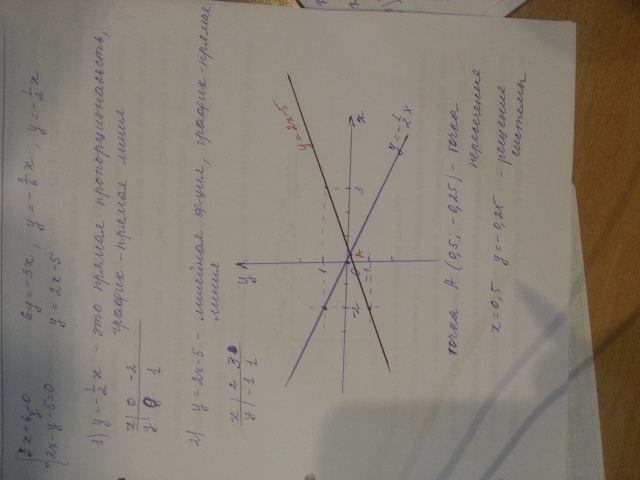 {3x+6y=0 6y=-3x; y=-3/6x; y=-1/2x
{2x-y-5=0 y=2x-5
1) y=-1/2x - это прямая пропорциональность,
график-прямая линия
x | 0 -2
y | 0 1
2) y=2x-5 - линейная функция, график-прямая
линия
x | 2 3
y | -1 1
y
y=2x-5
x
y=-1/2x
1
3
0
A
-1
-2
точка A (0,5; -0,25) - точка
пересечения
x=0,5 y=-0,25 - решение
системы